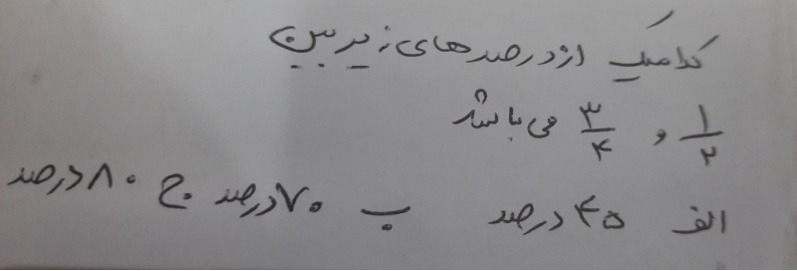 کدامیک از درصدهای زیر بین
۱/۲ و ۳/۴ می باشد
الف ۴۵ درصد ب ۷۰ درصد ج ۸۰ درصد